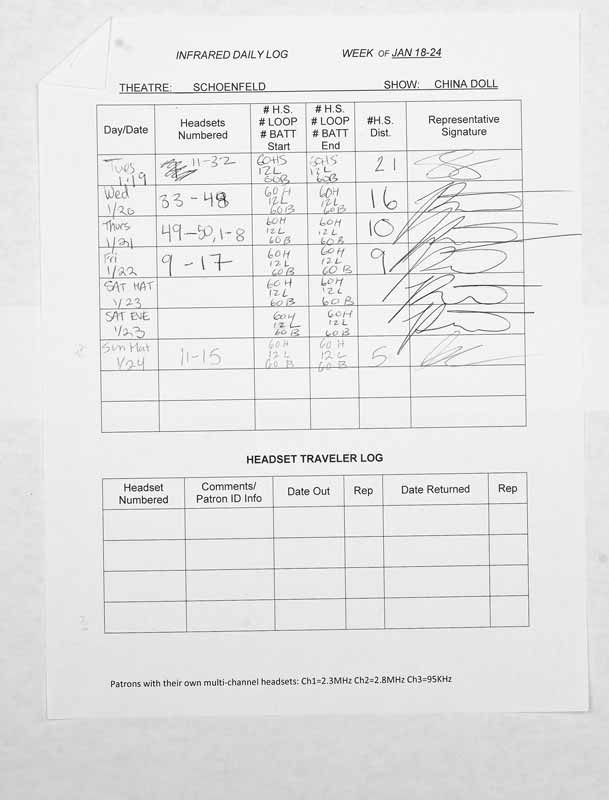 INFRARED DAILY LOG WEEK OF JAN 18-24
THEATRE: SCHOENFELD SHOW: CHINA DOLL
Day/Date Headsets Numbered # H.S. # LOOP # BATT Start # H.S. # LOOP # BATT End #H.S. Dist. Representative Signature
Tues 1/19 11-32 60HS 12L 60B 60HS 12L 60B 21
Wed 1/20 33-48 60H 12L 60B 60H 12L 60B 16
Thurs 1/21 49-50, 1-8 60H 12L 60B 60H 12L 60B 10
Fri 1/22 9-17 60H 12L 60B 60H 12L 60B 9
SAT MAT 1/23 60H 12L 60B 60H 12L 60B
SAT EVE 1/23 60H 12L 60B 60H 12L 60B
Sun Mat 1/24 11-15 60H 12L 60B 60H 12L 60B 5
HEADSET TRAVELER LOG
Headset Numbered Comments/ Patron ID Info Date Out Rep Date Returned Rep
Patrons with their own multi-channel headsets: Ch1=2.3MHz Ch2=2.8MHz Ch3=95KHz